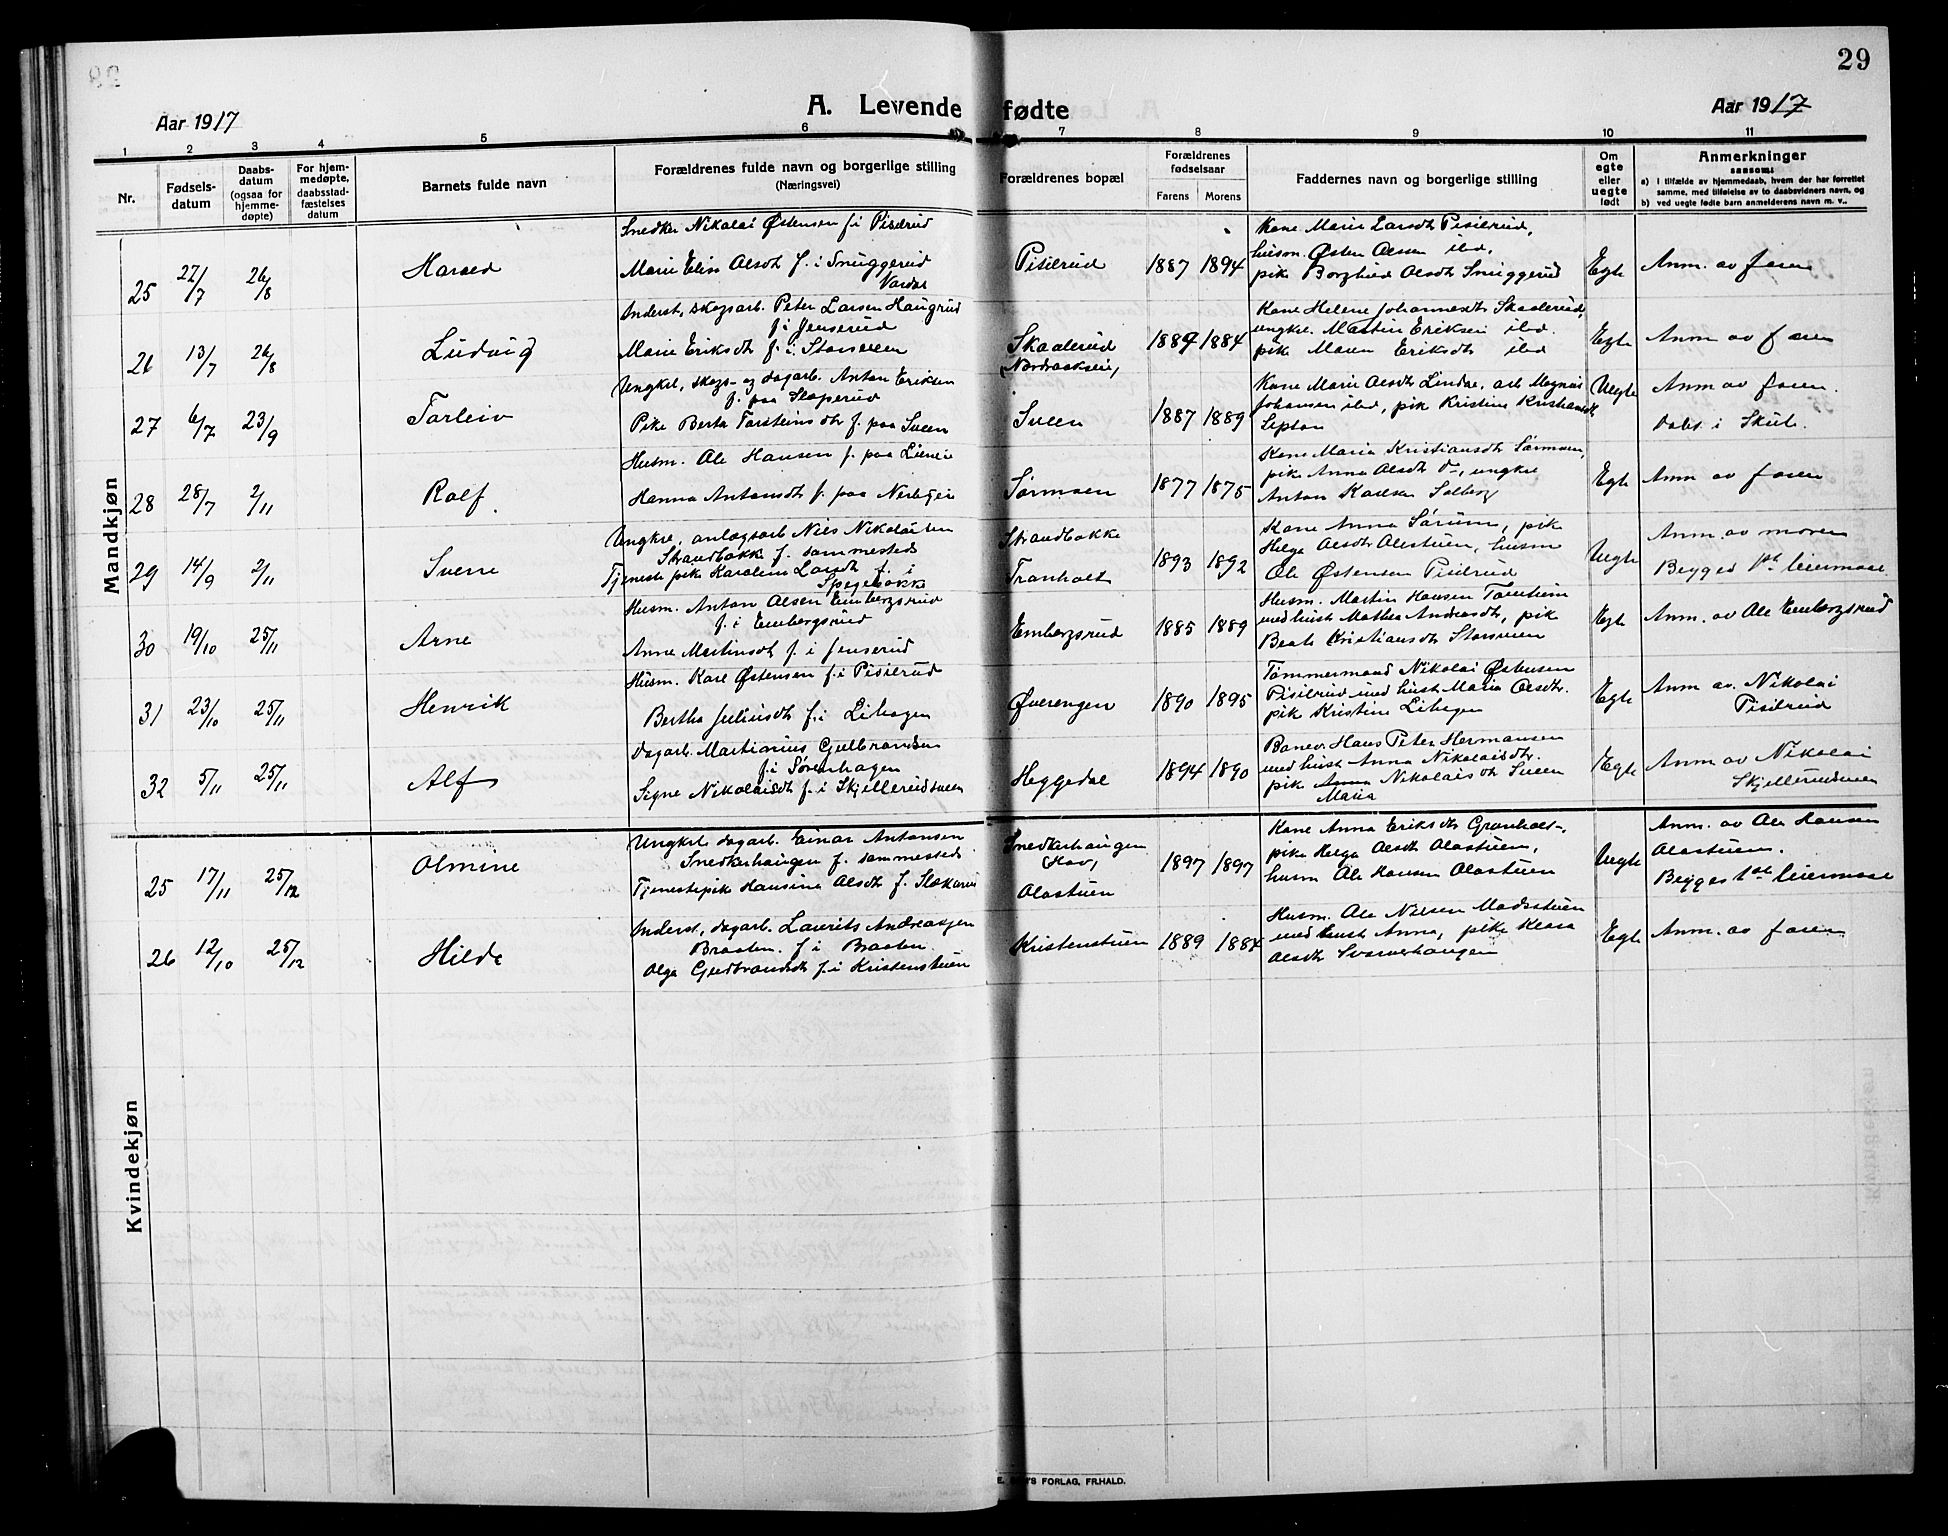 29
A. Levende fødte
Aar 1917
Aar 1917
1 2 3 4 5 6 7 8 9 10 11
Nr.
Fødsels-
datum
Daabs-
datum
(ogsaa for
hjemme-
døpte)
For hjem-
medøpte,
daabsstad-
fæstelses
datum
Barnets fulde navn
Forældrenes fulde navn og borgerlige stilling
(Næringsvei)
Forældrenes bopæl
Forældrenes
fødselsaar
Farens Morens
Faddernes navn og borgerlige stilling
Om
egte
eller
uegte
født
Anmerkninger
saasom:
a) i tilfælde av hjemmedaab, hvem der har forrettet
samme, med tilføielse av to daabsvidners navn, og
b) ved uegte fødte barn anmelderens navn m. v..
Mandkjøn
25 27/7 26/8 Harald
Snedker Nikolai Østensen f. i Pisilrud
Marie Elise Olsdtr f. i Snuggerud
Vardal
Pisilrud 1887 1894
Kone Marie Larsdtr Pisilrud,
husm. Østen Olsen ibd,
pike Borghild Olsdtr Snuggerud
Egte Anm. av faren
26 13/7 26/8 Ludvig
Inderst, skogsarb. Peter Larsen Haugrud
f. i Jenserud
Marie Eriksdtr f. i Storsveen
Skaalerud
1884
Kone Helene Johannesdtr Skaalerud,
ungkr. Martin Eriksen ibd.
pike Maren Eriksdtr ibd
Egte Anm av faren
27 6/7 23/9 Torleiv
Ungkrl, skogs- og dagarb. Anton Eriksen
f. paa Sloperud
Pike Berta Torsteinsdtr f. paa Sveen
Sveen 1887 1889
Kone Marie Olsdtr Lindal, arb Magnus
Johansen ibd, pike Kristine Kristiansdtr
Uegte Anm av faren.
Døbt i Skute.
28 28/7 2/11 Rolf
Husm. Ole Hansen f. paa Lieneie
Hanna Antonsdtr f. paa
Sørmoen 1877 1875
Kone Maria Kristiansdtr Sørmoen,
pike Anna Olsdtr do, ungkr
Anton Karlsen Solberg
Egte Anm av faren
29 14/9 2/11 Sverre
Ungkrl, anlægsarb Nils Nikolaisen
Strandbakke f. sammesteds
Tjeneste pike Karoline Larsdtr f. i
Strandbakke
Tranholt 1893 1892
Kone Anna Sørum, pike
Helga Olsdtr Olastuen, husm
Ole Østensen Pisilrud
Uegte Anm. av moren
Begges 1ste leiermaal.
30 19/10 25/11 Arne
Husm. Anton Olsen Embergsrud
f. i Embergsrud
Anne Martinsdtr f. i Jenserud
Embergsrud 1885 1889
Husm. Martin Hansen
med hust Mathea Andersdtr, pike
Beate Kristiansdtr Storsveen
Egte Anm. av Ole Embergsrud
31 23/10 25/11 Henrik
Husm. Karl Østensen f. i Pisilrud
Bertha Juliusdtr f. i Lihagen
Øverengen 1890 1895
Tømmermand Nikolai Østensen
Pisilrud med hust Maria Olsdtr.
pik Kristine Lihagen
Egte Anm av. Nikolai
Pisilrud
32 5/11 25/11 Alf
Dagarb. Martinius Gulbrandsen
f. i Sørenhagen
Signe Nikolaisdtr f. i Skjellerudsveen
Heggedal 1894 1890
Banev. Hans Peter Hermansen
med hust Anna Nikolaisdtr.
pik Anna Nikolaisdtr Sveen
Maria
Egte Anm av Nikolai
Skjellerudsveen
Kvindekjøn
25 17/11 25/12 Olmine
Ungkrl dagarb. Einar Antonsen
Snedkerhaugen f. sammesteds
Tjenestepike Hansine Olsdtr f.
Snedkerhaugen
Olastuen 1897 1897
Kone Anna Eriksdtr Granholt,
pike Helga Olsdtr Olastuen,
husm Ole Hansen Olastuen
Uegte Anm. av Ole Hansen
Olastuen.
Begges 1ste leiermaal
26 12/10 25/12 Hilda
Inderst, dagarb. Laurits Andreassen
Braaten. f. i Braaten.
Olga Gulbrandsdtr f. i Kristenstuen
Kristenstuen 1889 1884
Husm. Ole Nilsen Madsstuen
med hust Anna, pike Klara
Olsdtr Svarverhaugen
Egte Anm. av faren
FORLAG, FR.HALD.